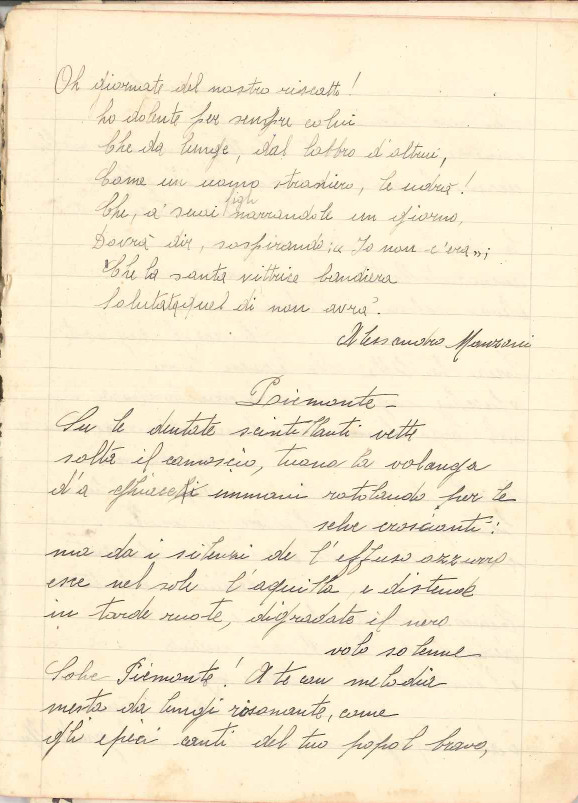 Oh giornate del nostro riscatto!
Oh dolente per sempre colui
Che da lunge, dal labbro d'altrui,
Come un uomo straniero, le udrà!
Che, a' suoi figli narrandole un giorno,
Dovrà dir, sospirando: « Io non c'era »;
Che la santa vittrice bandiera
Salutata quel dì non avrà.
Alessandro Manzoni
Piemonte -
Su le dentate scintillanti vette
salta il camoscio, tuona la valanga
d'a ghiacci immani rotolando per le
selve croscianti:
ma da i silenzi de l'effuso azzurro
esce nel sole l'aquilla, e distende
in tarde ruote, digradate il nero
volo solenne
Salve Piemonte! A te con melodia
mesta da lungi risonante, come
gli epici canti del tuo popol bravo,